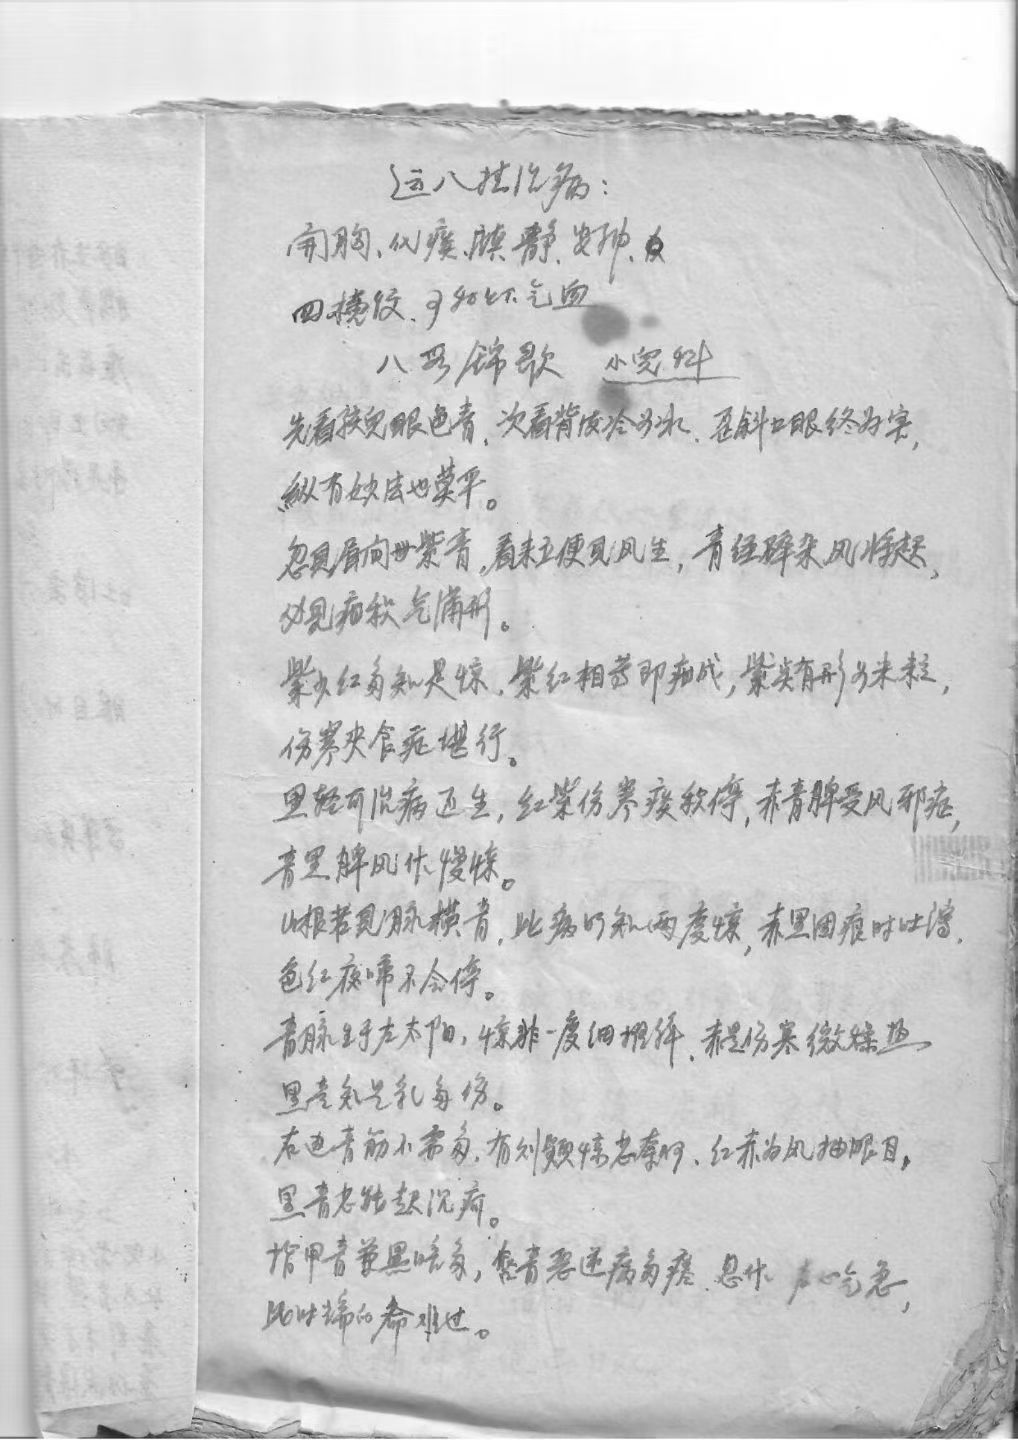 运八卦治病:
开胸、化痰、镇静、安神、
四横纹、气血
八段锦歌 小儿科
先看孩儿眼色青,次看背皮冷如冰、歪斜口眼终为害,
纵有妙法也莫平。
忽见眉间 紫青,看来立便见风生,青经 杂风将起,
必见疳积气 形。
紫少红多知是惊,紫红相等即疳成,紫 有形如米粒,
伤寒夹食症堪行。
黑轻可治病还生,红紫伤寒痰积停,赤青脾受风邪症,
青黑脾风作慢惊。
山根若见脉横青,此病明知两度惊,赤黑困疲时吐泻,
色红夜啼不会停。
青脉生于左太阳,惊非一度细推详、赤是伤寒微燥热
黑青知是乳多伤。
右边青筋不需多,有则频惊怎奈何、红赤为风抽眼目,
黑青 沉疴。
指甲青兼黑暗多, 青恶逆病多 心气急,
此 难过。